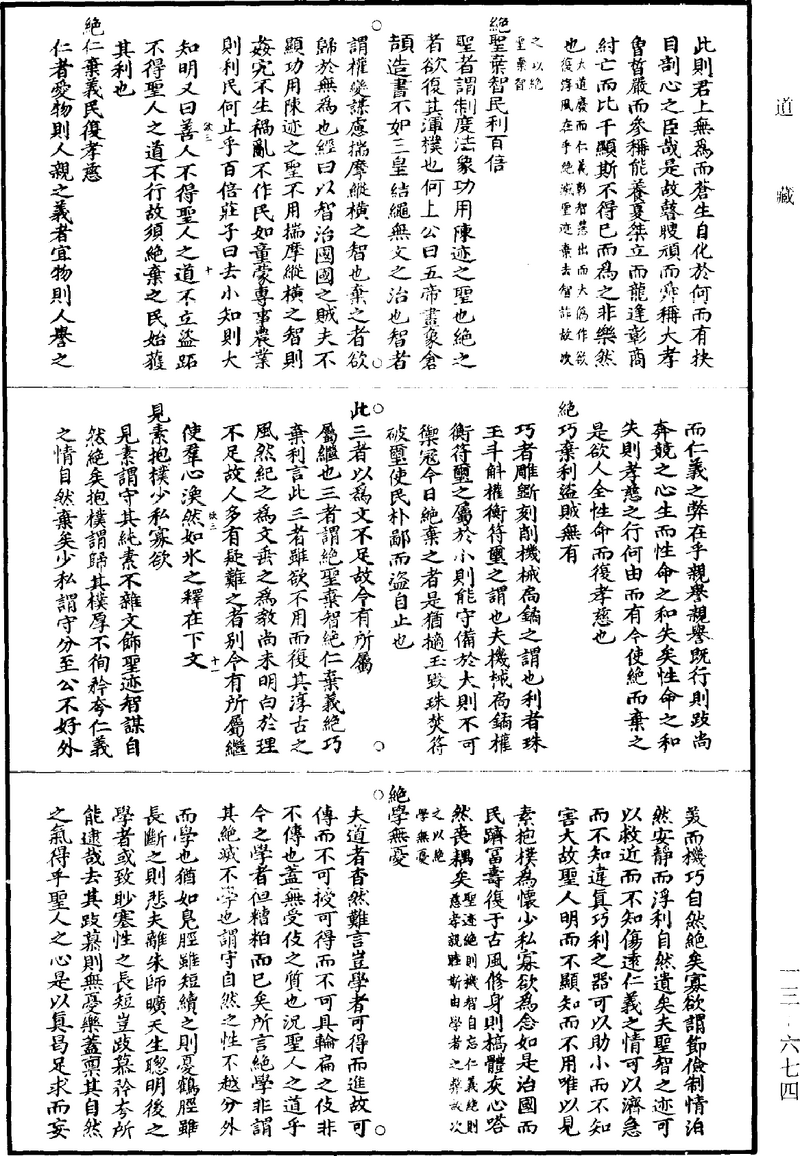 道藏
此則君上無為而蒼生自化於何而有抉
目剖心之臣哉是故瞽瞍頑而舜稱大孝
魯晳嚴而參稱能養夏桀立而龍逢彰商
紂亡而比干顯斯不得已而為之非樂然
也大道廢而仁義彰智慧出而大偽作欲復淳風在乎絕滅聖迹棄去智詐故次
之以絕聖棄智
絕聖棄智民利百倍
聖者謂制度法象功用陳迹之聖也絕之
者欲復其渾樸也何上公曰五帝畫象倉
頡造書不如三皇結繩無文之治也智者
謂權變謀慮揣摩縱橫之智也棄之者欲
歸於無為也經曰以智治國國之賊夫不
顯功用陳迹之聖不用揣摩縱橫之智則
姦宄不生禍亂不作民如童蒙專事農業
則利民何止乎百倍莊子曰去小知則大
知明又曰善人不得聖人之道不立盜跖
不得聖人之道不行故須絕棄之民始獲
其利也
絕仁棄義民復孝慈
仁者愛物則人親之義者宜物則人譽之
而仁義之弊在乎親譽親譽既行則跂尚
奔競之心生而性命之和失矣性命之和
失則孝慈之行何由而有今使絕而棄之
是欲人全性命而復孝慈也
絕巧棄利盜賊無有
巧者雕斲刻削機械扃鐍之謂也利者珠
玉斗斛權衡符璽之謂也夫機械扃鐍權
衡符璽之屬於小則能守備於大則不可
禦寇今日絕棄之者是猶擿玉毀珠焚符
破璽使民朴鄙而盜自止也
此三者以為文不足故令有所屬
屬繼也三者謂絕聖棄智絕仁棄義絕巧
棄利言此三者雖欲不用而復其淳古之
風然紀之為文垂之為教尚未明白於理
不足故人多有疑難之者別令有所屬繼
使羣心渙然如氷之釋在下文
見素抱樸少私寡欲
見素謂守其純素不雜文飾聖迹智謀自
然絕矣抱樸謂歸其樸厚不徇矜夸仁義
之情自然棄矣少私謂守分至公不好外
羨而機巧自然絕矣寡欲謂節儉制情泊
然安靜而浮利自然遺矣夫聖智之迹可
以救近而不知傷遠仁義之情可以濟急
而不知違真巧利之器可以助小而不知
害大故聖人明而不顯知而不用唯以見
素抱樸為懷少私寡欲為念如是治國而
民躋富壽復于古風修身則槁體灰心嗒
然喪耦矣聖迹絕則機智自忘仁義絕則慈孝親睦斯由學者之弊故次
之以絕學無憂
絕學無憂
夫道者杳然難言豈學者可得而進故可
傳而不可授可得而不可具輪扁之伎非
不傳也蓋無受伎之質也況聖人之道乎
今之學者但糟粕而已矣所言絕學非謂
其絕滅不學也謂守自然之性不越分外
而學也猶如鳧脛雖短續之則憂鶴脛雖
長斷之則悲夫離朱師曠天生聰明後之
學者或致眇塞性之長短豈跂慕矜夸所
能逮哉去其跂慕則無憂樂蓋禀其自然
之氣得乎聖人之心是以真曷足求而妄
一三·六七四